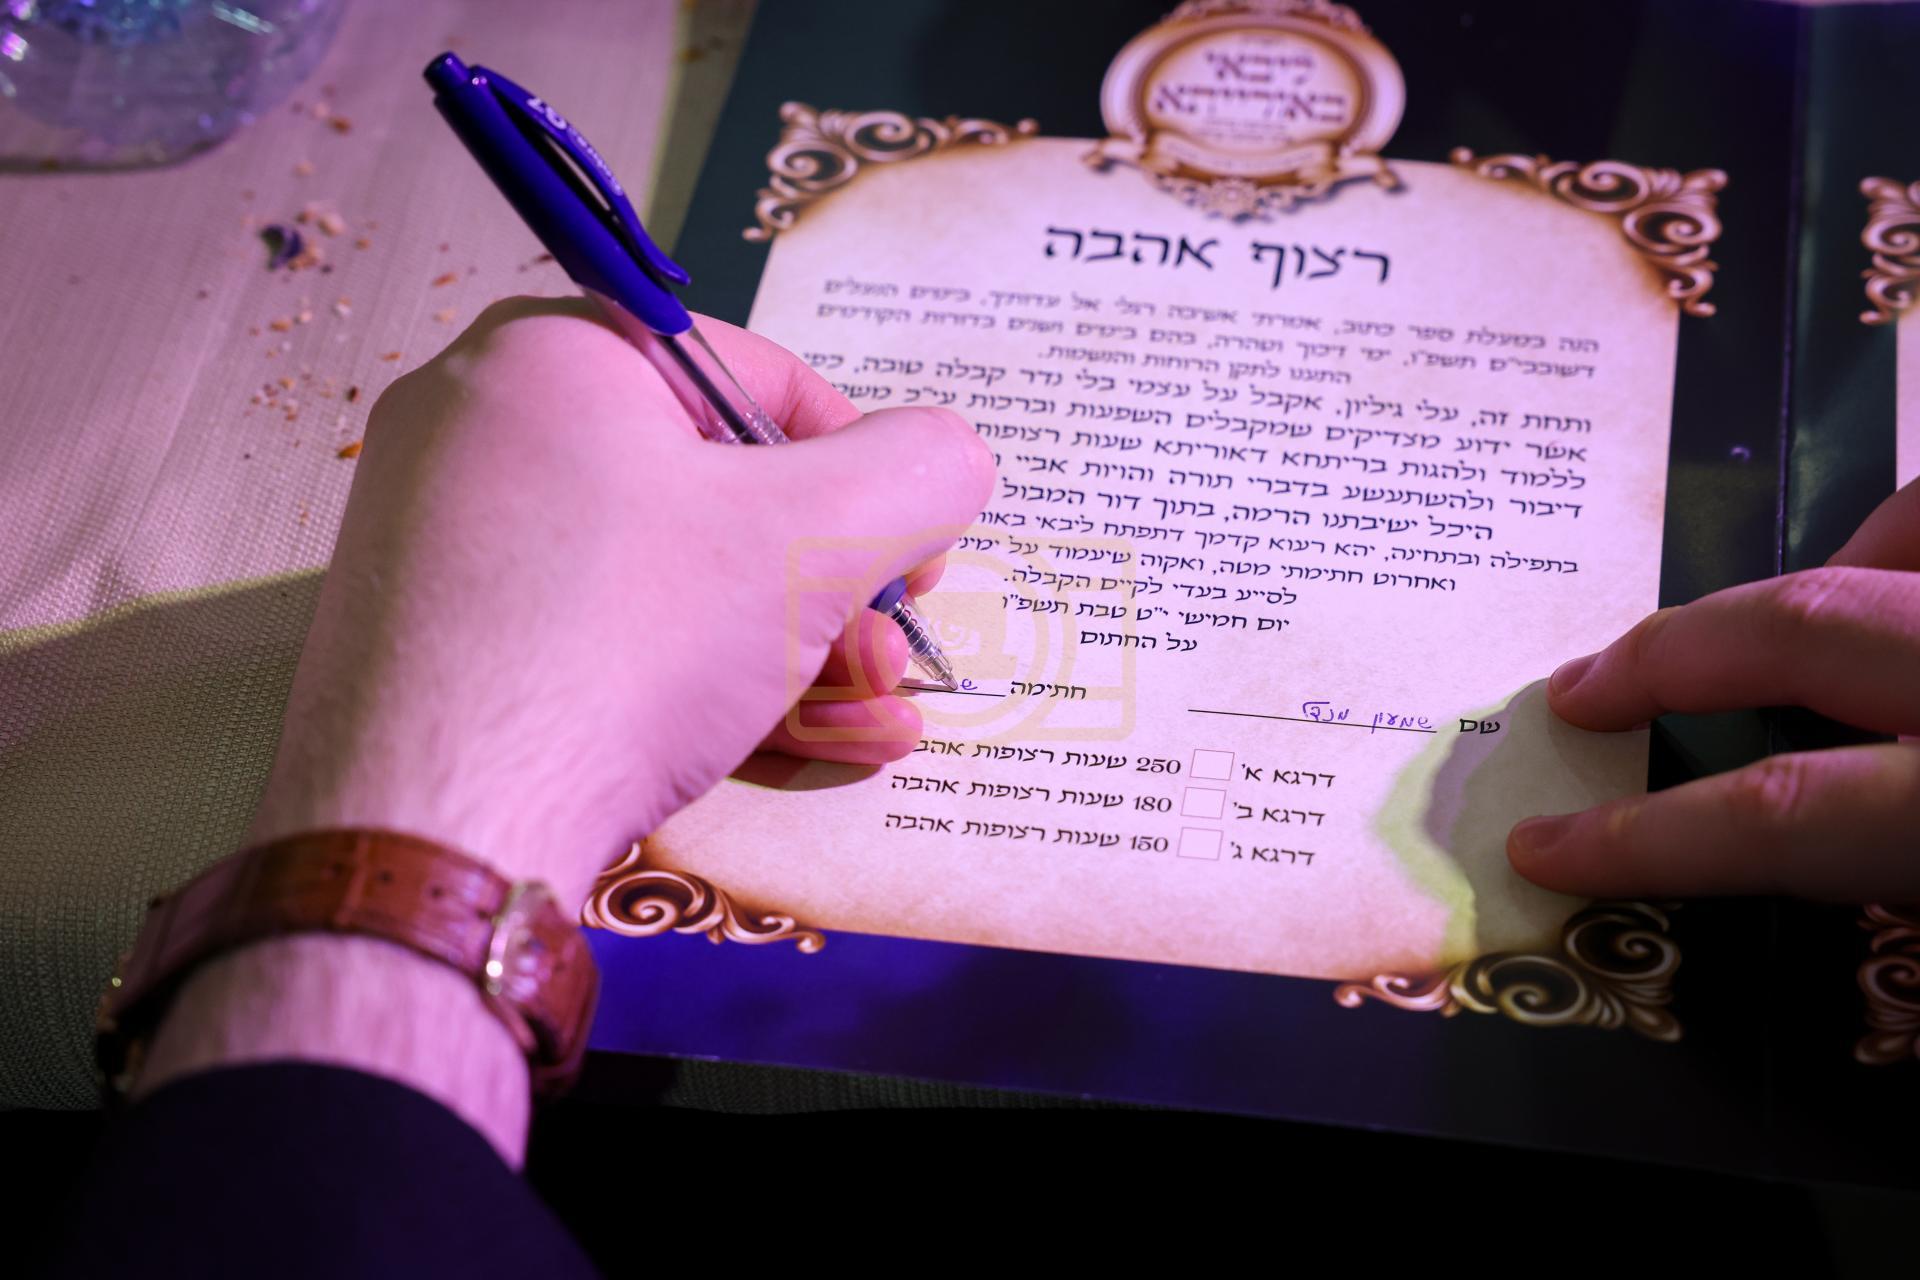 ליבאי
באורייתא
רצוף אהבה
הנה במעלת ספר כתוב, אמרתי אשיבה רגלי אל עדותיך, בימים הנעלים
דשובבי"ם תשפ"ו, ימי זיכוך וטהרה, בהם בימים ושנים בדורות הקודמים
התענו לתקן הרוחות והנשמות.
ותחת זה, עלי גיליון, אקבל על עצמי בלי נדר קבלה טובה, כפי
אשר ידוע מצדיקים שמקבלים השפעות וברכות עי"כ
ללמוד ולהגות בריתחא דאוריתא שעות רצופות
דיבור ולהשתעשע בדברי תורה והויות אביי
היכל ישיבתנו הרמה, בתוך דור המבול
בתפילה ובתחינה, יהא רעוא קדמך דתפתח ליבאי
ואחרוט חתימתי מטה, ואקוה שיעמוד על
לסייע בעדי לקיים הקבלה.
יום חמישי י"ט טבת תשפ"ו
על החתום
שם שמעון מנדל חתימה ש
דרגא א' 250 שעות רצופות
דרגא ב' 180 שעות רצופות אהבה
דרגא ג' 150 שעות רצופות אהבה